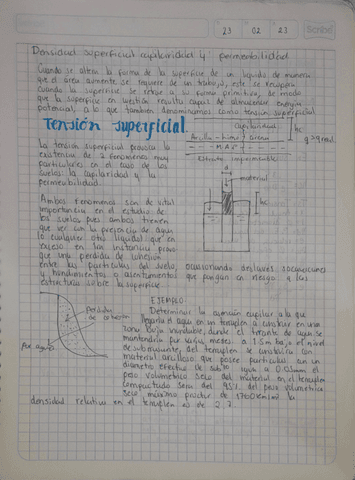 23 02 23
Scribe
Densidad superficial capilaridad y permeabilidad
Cuando se altera la forma de la superficie de un liquido de manera
que el área aumente se requiere de un trabajo, este se recupera
cuando la superficie se retrae a su forma primitiva, de modo
que la superficie en cuestión resulta capaz de almacenar energía
potencial, a lo que también denominamos como tensión superficial
Tensión superficial
Capilaridad
hc
Arcilla - Limo Arena
N A F
Estrato impermeable
La tensión superficial provoca la
existencia de 2 fenómenos muy
particulares en el caso de los
suelos: la capilaridad y la
permeabilidad.
d
material
hc
Ambos fenomenos son de vital
importancia en el estudio de
los suelos pues ambos tienen
que ver con la presencia de agua
(o cualquier otro liquido) que en
exceso en una instancia
que una perdida de cohesion
entre las particulas del suelo, ocasionando deslaves, socavaciones
y hundimientos o asentamientos que pongan en riesgo a las
estructuras sobre la superficie
EJEMPLO
Perdida
de cohesión
Por agua
Determinar la ascensión capilar a la que
llegaría el agua en un terraplen a construir en una
zona baja inundable, durante el tirante de agua se
mantendria por varios meses a 1.5m bajo el nivel
de subrasante, del terraplen se construira con
material arcilloso que posee particulas con un
diametro efectivo de igual a
peso volumetrico seco del material en el terraplen
compactado sera del 95% del peso volumetrico
seco máximo proctor de 1760 la
densidad relativa en el terraplen es de 2.7